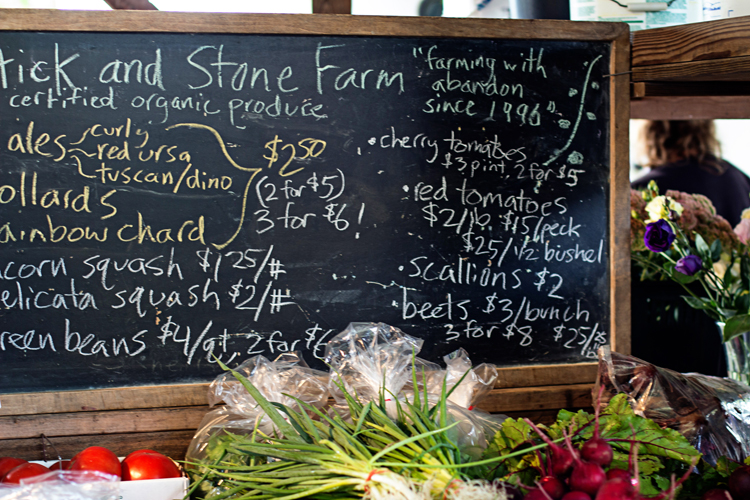 tick and Stone Farm
certified organic produce
"farming with
abandon
since 1996"
ales curly
red ursa
tuscan/dino
ollards
ainbow chard
$2.50
(2 for $5)
3 for $6!
corn squash $1.25/#
elicata squash $2/#
reen beans $4/qt, 2 for $6
• cherry tomatoes
$3 pint, 2 for $5
• red tomatoes
$2/lb. $15/peck
$25/1/2 bushel
• scallions $2
• beets $3/bunch
3 for $8 $25/